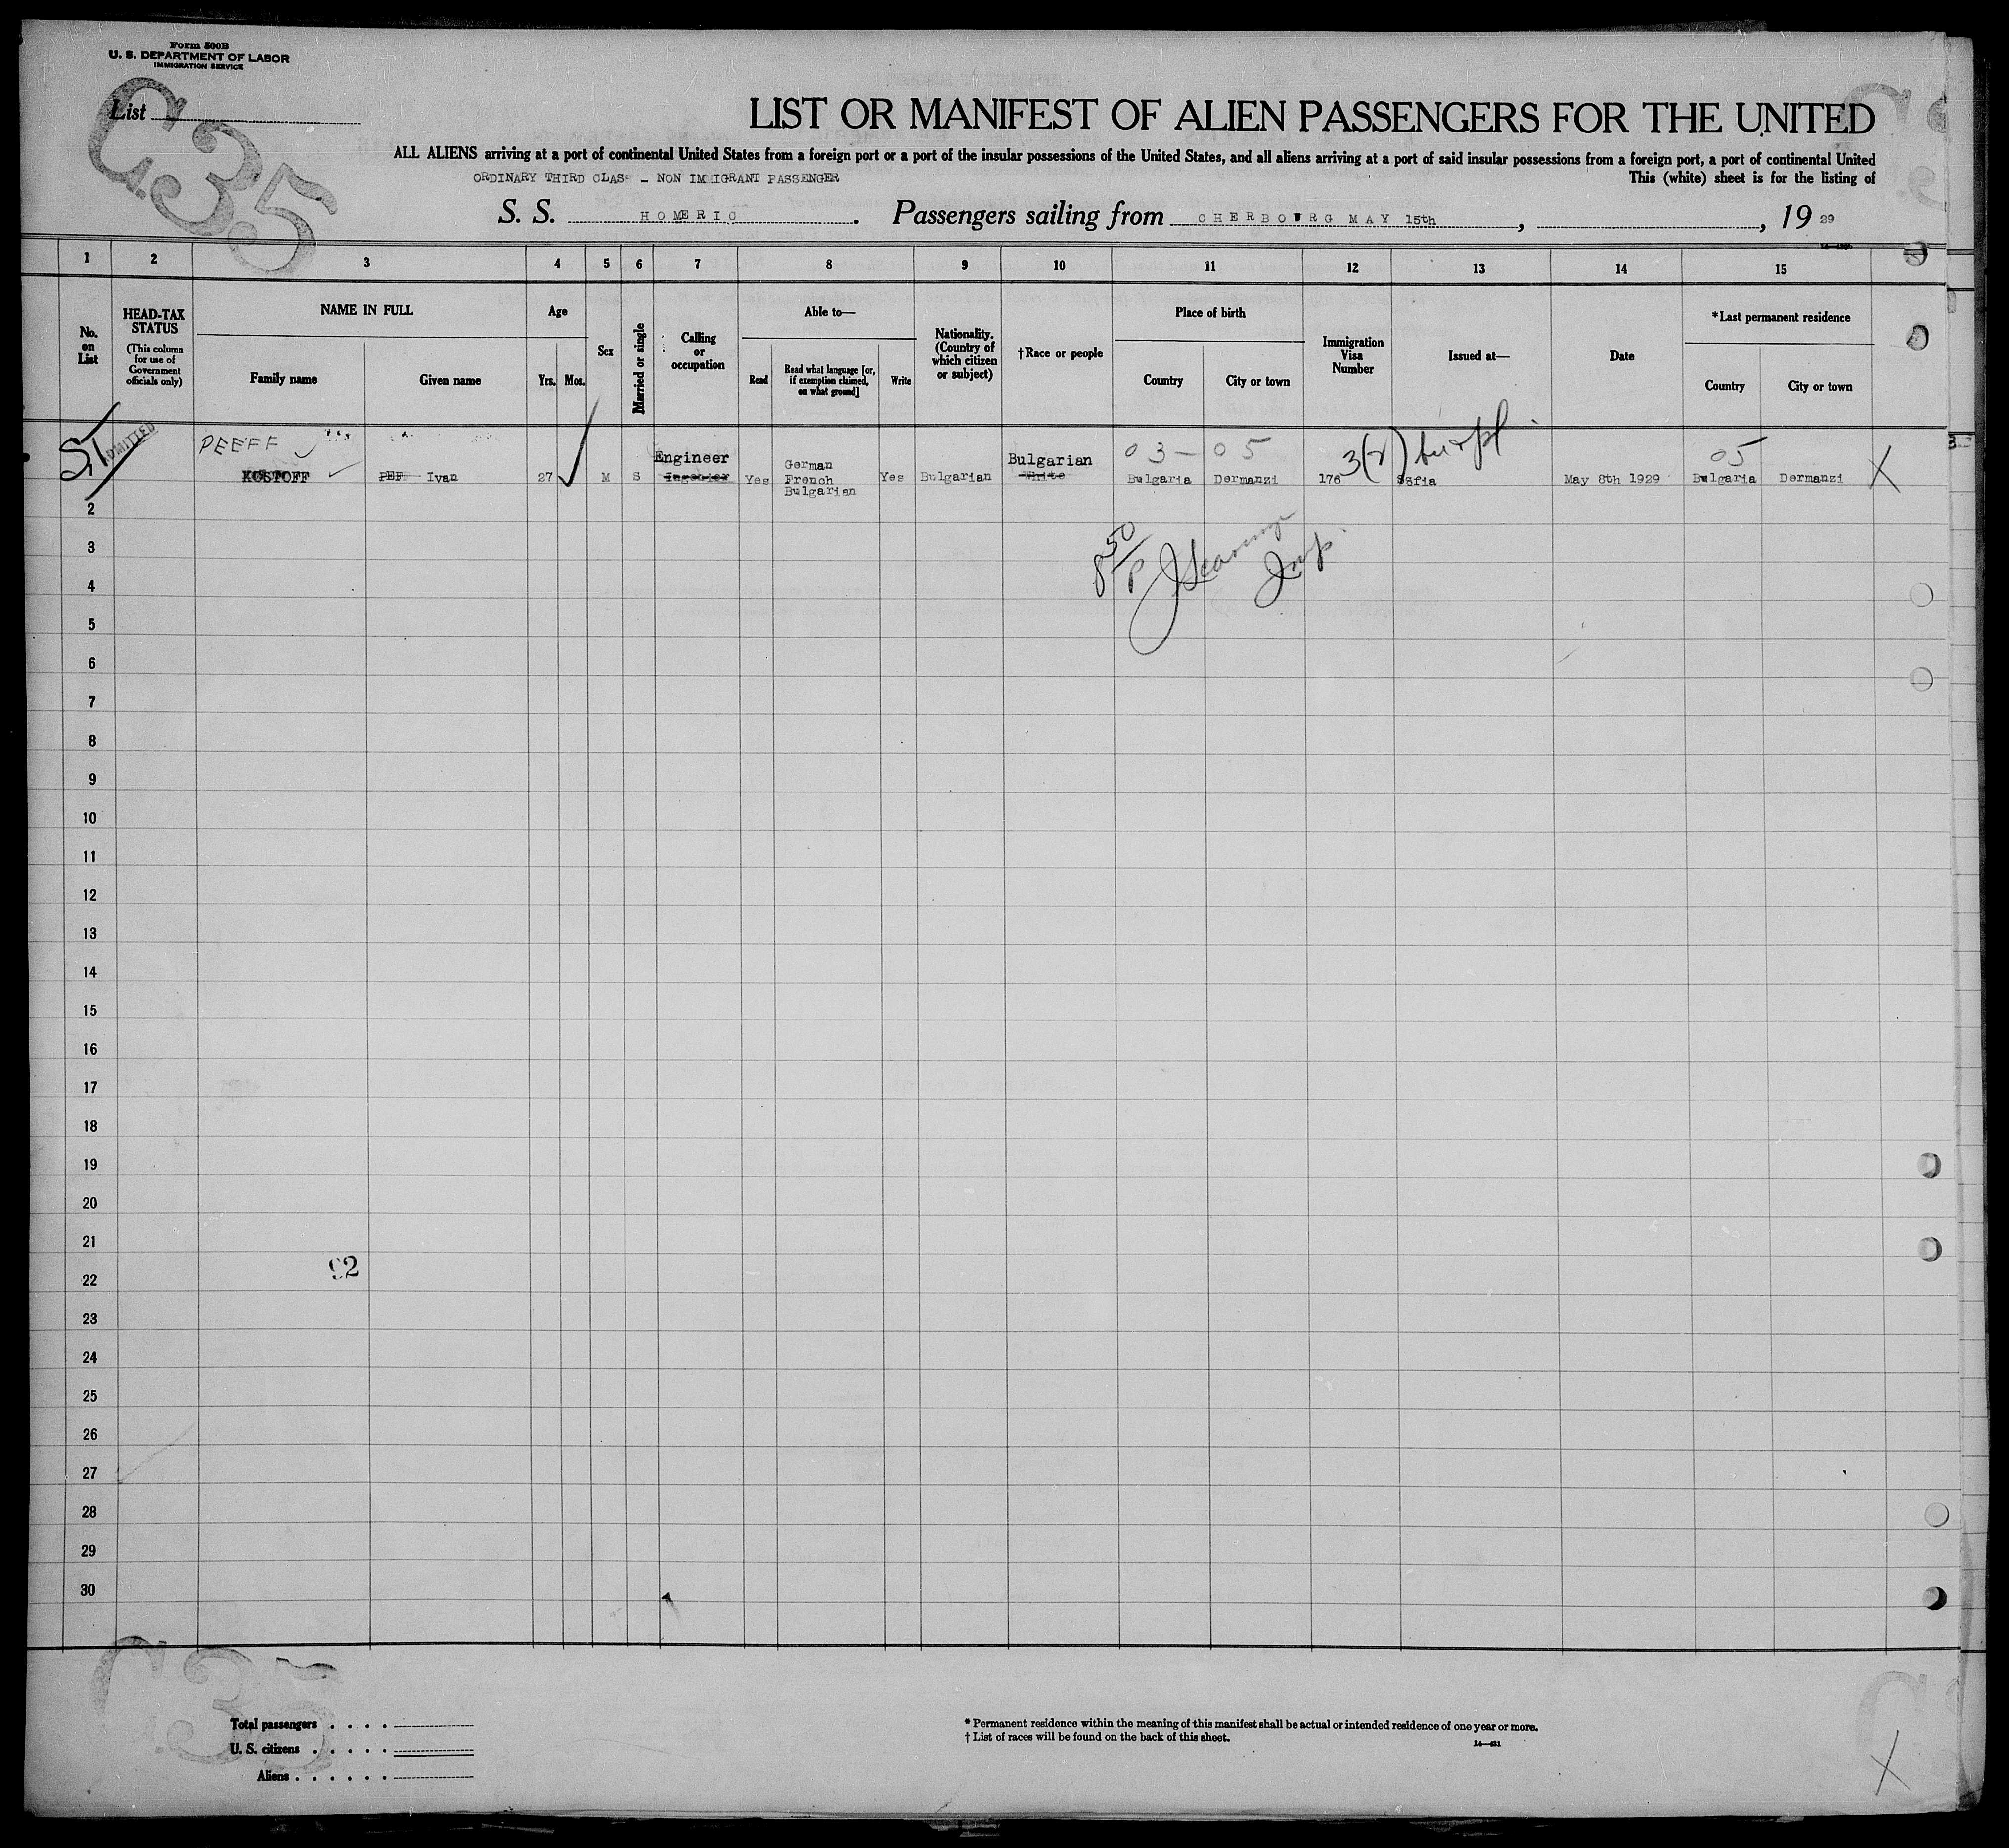 Form 500B
U. S. DEPARTMENT OF LABOR
IMMIGRATION SERVICE
C35
List
LIST OR MANIFEST OF ALIEN PASSENGERS FOR THE UNITED
ALL ALIENS arriving at a port of continental United States from a foreign port or a port of the insular possessions of the United States, and all aliens arriving at a port of said insular possessions from a foreign port, a port of continental United
ORDINARY THIRD CLASS – NON IMMIGRANT PASSENGER
This (white) sheet is for the listing of
S. S. HOMERIC. Passengers sailing from CHERBOURG MAY 15th, , 19 29
1 2 3 4 5 6 7 8 9 10 11 12 13 14 15
No. on List
HEAD-TAX STATUS
(This column for use of Government officials only)
NAME IN FULL
Family name
Given name
Age
Yrs. Mos.
Sex
Married or single
Calling or occupation
Able to—
Read
Read what language [or, if exemption claimed, on what ground]
Write
Nationality. (Country of which citizen or subject)
†Race or people
Place of birth
Country
City or town
Immigration Visa Number
Issued at—
Date
*Last permanent residence
Country
City or town
ADMITTED
PEEFF
03- 05
3(2)
05
Engineer
Bulgarian
KOSTOFF PEF Ivan 27 M S Yes German French Bulgarian Yes Bulgarian White Bulgaria Dermanzi 176 Sofia May 8th 1929 Bulgaria Dermanzi X
2
3
850/P
Insp.
4
5
6
7
8
9
10
11
12
13
14
15
16
17
18
19
20
21
92
22
23
24
25
26
27
28
29
30
C35
Total passengers
U. S. citizens
Aliens
* Permanent residence within the meaning of this manifest shall be actual or intended residence of one year or more.
† List of races will be found on the back of this sheet.
X